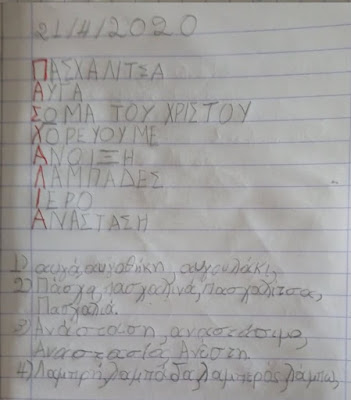 21/4/2020
ΠΑΣΧΑΛΙΤΣΑ
ΑΥΓΑ
ΣΩΜΑ ΤΟΥ ΧΡΙΣΤΟΥ
ΧΟΡΕΥΟΥΜΕ
ΑΝΟΙΞΗ
ΛΑΜΠΑΔΕΣ
ΙΕΡΟ
ΑΝΑΣΤΑΣΗ
1) αυγά, αυγοθήκη, αυγουλάκι,
2) Πάσχα, πασχαλινά, πασχαλίτσα,
Πασχαλιά.
3) Ανάσταση, αναστάσιμο,
Αναστασία, Ανέστη.
4) Λαμπρή, λαμπάδα, λαμπερός, λάμπω,